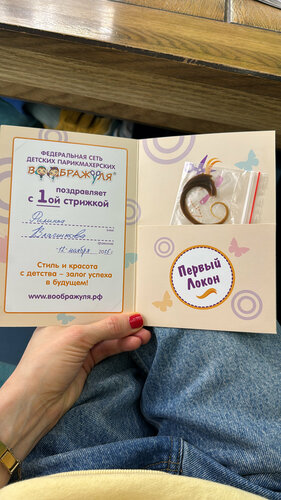 ФЕДЕРАЛЬНАЯ СЕТЬ
ДЕТСКИХ ПАРИКМАХЕРСКИХ
ВООБРАЖУЛЯ®
поздравляет
с 1ой стрижкой
имя
фамилия
12 ноября
Стиль и красота
с детства – залог успеха
в будущем!
www.воображуля.рф
Первый
Локон